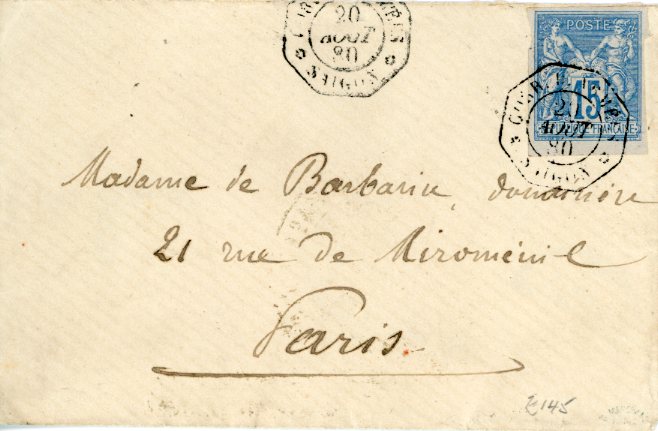 20
AOUT
80
SAIGON
POSTE
15
FRANÇAISE
20
AOUT
80
SAIGON
Madame de Barbarin, douairière
21 rue de Miroménil
Paris
E145